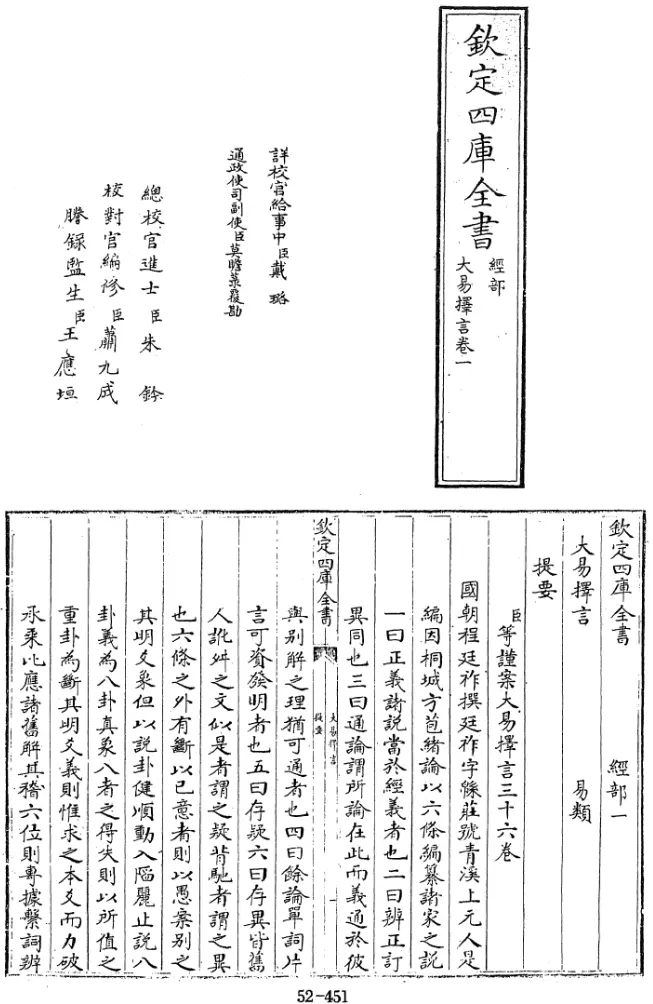 欽定四庫全書
經部
大易擇言卷一
詳校官給事中臣戴璐
通政使司副使臣莫瞻菉覆勘
總校官進士臣朱鈐
校對官編修臣蕭九成
謄錄監生臣王應垣
欽定四庫全書 經部一
大易擇言 易類
提要
臣等謹案大易擇言三十六卷
國朝程廷祚撰廷祚字綿莊號青溪上元人是
編因桐城方苞緒論以六條編纂諸家之說
一曰正義諸說當於經義者也二曰辨正訂
異同也三曰通論謂所論在此而義通於彼
欽定四庫全書
大易擇言
提要
一
與別解之理猶可通者也四曰餘論單詞片
言可資發明者也五曰存疑六曰存異皆舊
人訛舛之文似是者謂之疑背馳者謂之異
也六條之外有斷以己意者則以愚案別之
其明爻象但以說卦健順動入陷麗止說八
卦義為八卦真象八者之得失則以所值之
重卦為斷其明爻義則惟求之本爻而力破
承乘比應諸舊解其稱六位則專據繫詞辨
52-451